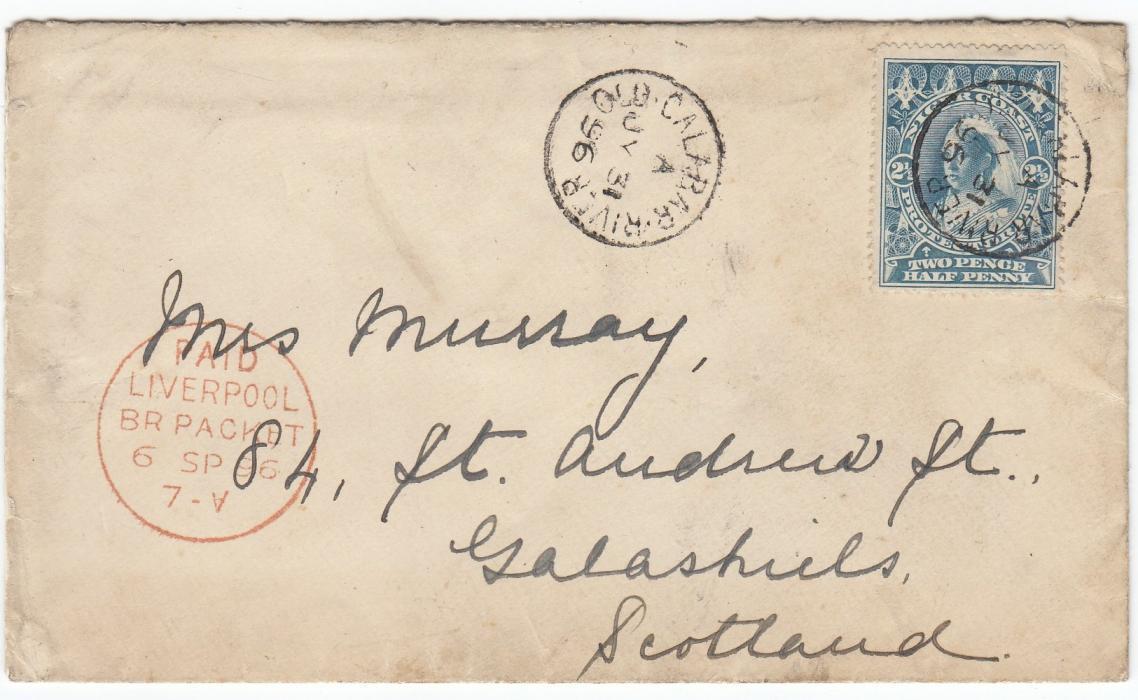 OLD·CALABAR·RIVER
A
JY 31
96
NIGER COAST
2½ 2½
PROTECTORATE
TWO PENCE
HALF PENNY
RIVER
A
31
96
Mrs Murray,
PAID
LIVERPOOL
BR PACKET
6 SP 96
7-A
84, St. Andrew St.,
Galashiels,
Scotland.